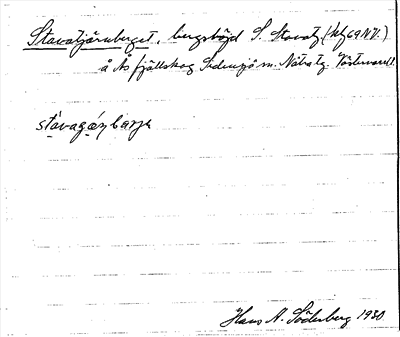 Stavatjärnberget, bergshöjd S. Stavatj (
å Ås fjällskog Sidensjö m. Nätra tg. Västernorrl.
stavagáṇbarjɛ
Hans A. Söderberg 1930